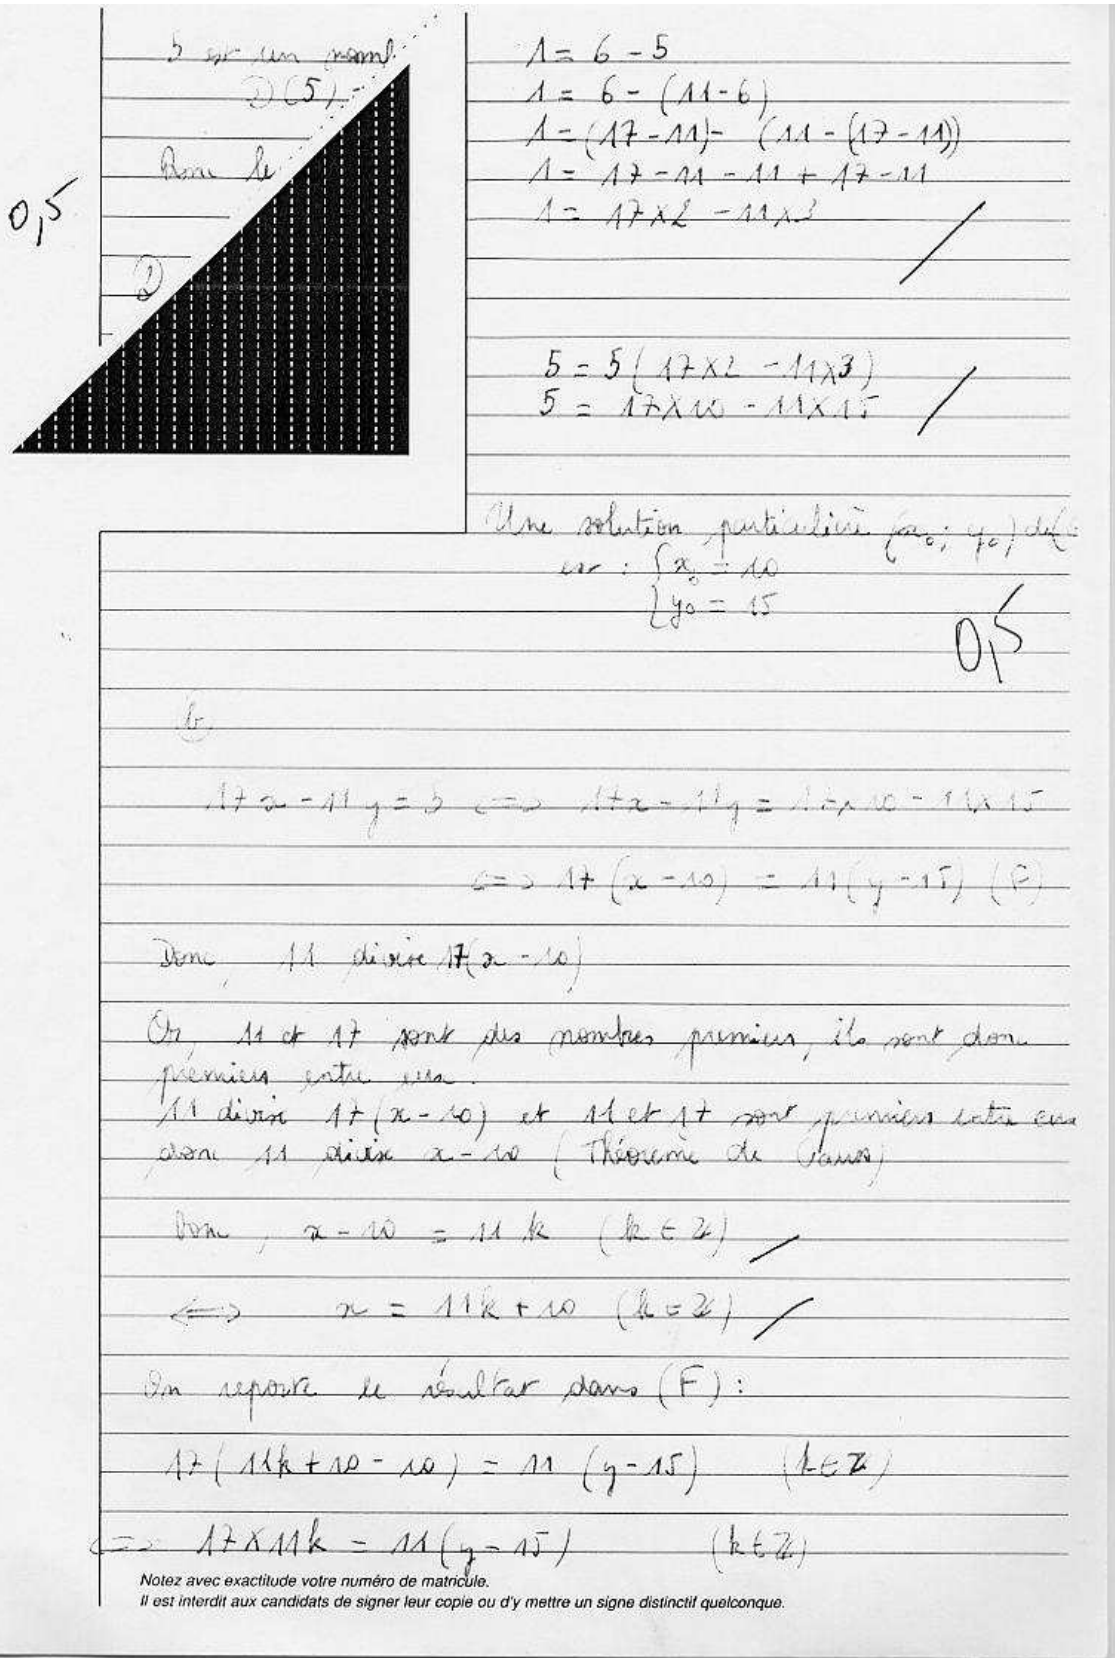 5 est un nomb
D(5) =
Donc le
0,5
②
1 = 6 - 5
1 = 6 - (11-6)
1 = (17-11) - (11-(17-11))
1 = 17 - 11 - 11 + 17 - 11
1 = 17×2 - 11×3
5 = 5(17×2 - 11×3)
5 = 17×10 - 11×15
Une solution particulière (x₀; y₀) de (
est : { x₀ = 10
{ y₀ = 15
0,5
b
17x - 11y = 5 <=> 17x - 11y = 17×10 - 11×15
<=> 17(x-10) = 11(y-15) (F)
Donc, 11 divise 17(x-10)
Or, 11 et 17 sont des nombres premiers, ils sont donc
premiers entre eux.
11 divise 17(x-10) et 11 et 17 sont premiers entre eux
donc 11 divise x-10 (Théorème de Gauss)
Donc, x-10 = 11k (k∈ℤ)
<=> x = 11k + 10 (k∈ℤ)
On reporte le résultat dans (F) :
17(11k+10-10) = 11(y-15) (k∈ℤ)
<=> 17×11k = 11(y-15) (k∈ℤ)
Notez avec exactitude votre numéro de matricule.
Il est interdit aux candidats de signer leur copie ou d'y mettre un signe distinctif quelconque.